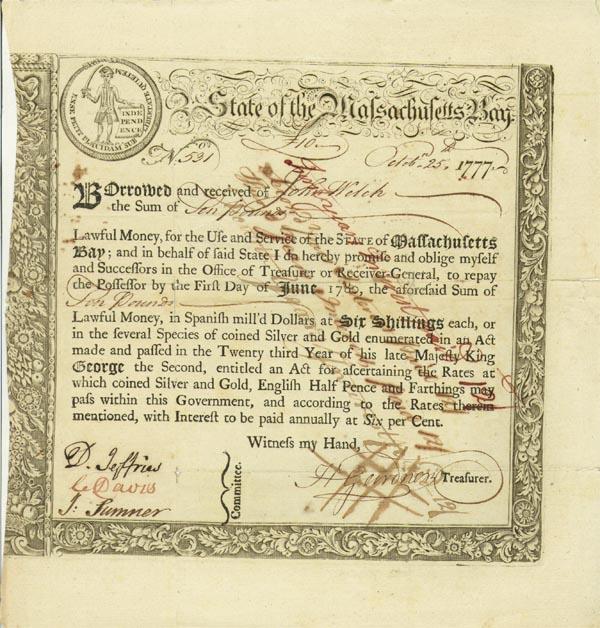 ENSE PETIT PLACIDAM SUB LIBERTATE QUIETEM
INDE
PEND
ENCE
State of the Massachusetts Bay.
£10
No. 531
Octobr. 25th 1777.
BOrrowed and received of John Welch
the Sum of Ten Pounds
Lawful Money, for the Use and Service of the STATE of Massachusetts
Bay; and in behalf of said State I do hereby promise and oblige myself
and Successors in the Office of Treasurer or Receiver-General, to repay
the Possessor by the First Day of June 1780, the aforesaid Sum of
Ten Pounds
Lawful Money, in Spanish mill'd Dollars at Six Shillings each, or
in the several Species of coined Silver and Gold enumerated in an Act
made and passed in the Twenty third Year of his late Majesty King
George the Second, entitled an Act for ascertaining the Rates at
which coined Silver and Gold, English Half Pence and Farthings may
pass within this Government, and according to the Rates therein
mentioned, with Interest to be paid annually at Six per Cent.
Witness my Hand,
D. Jeffries
Davis
J: Sumner
Committee.
H Gardner Treasurer.